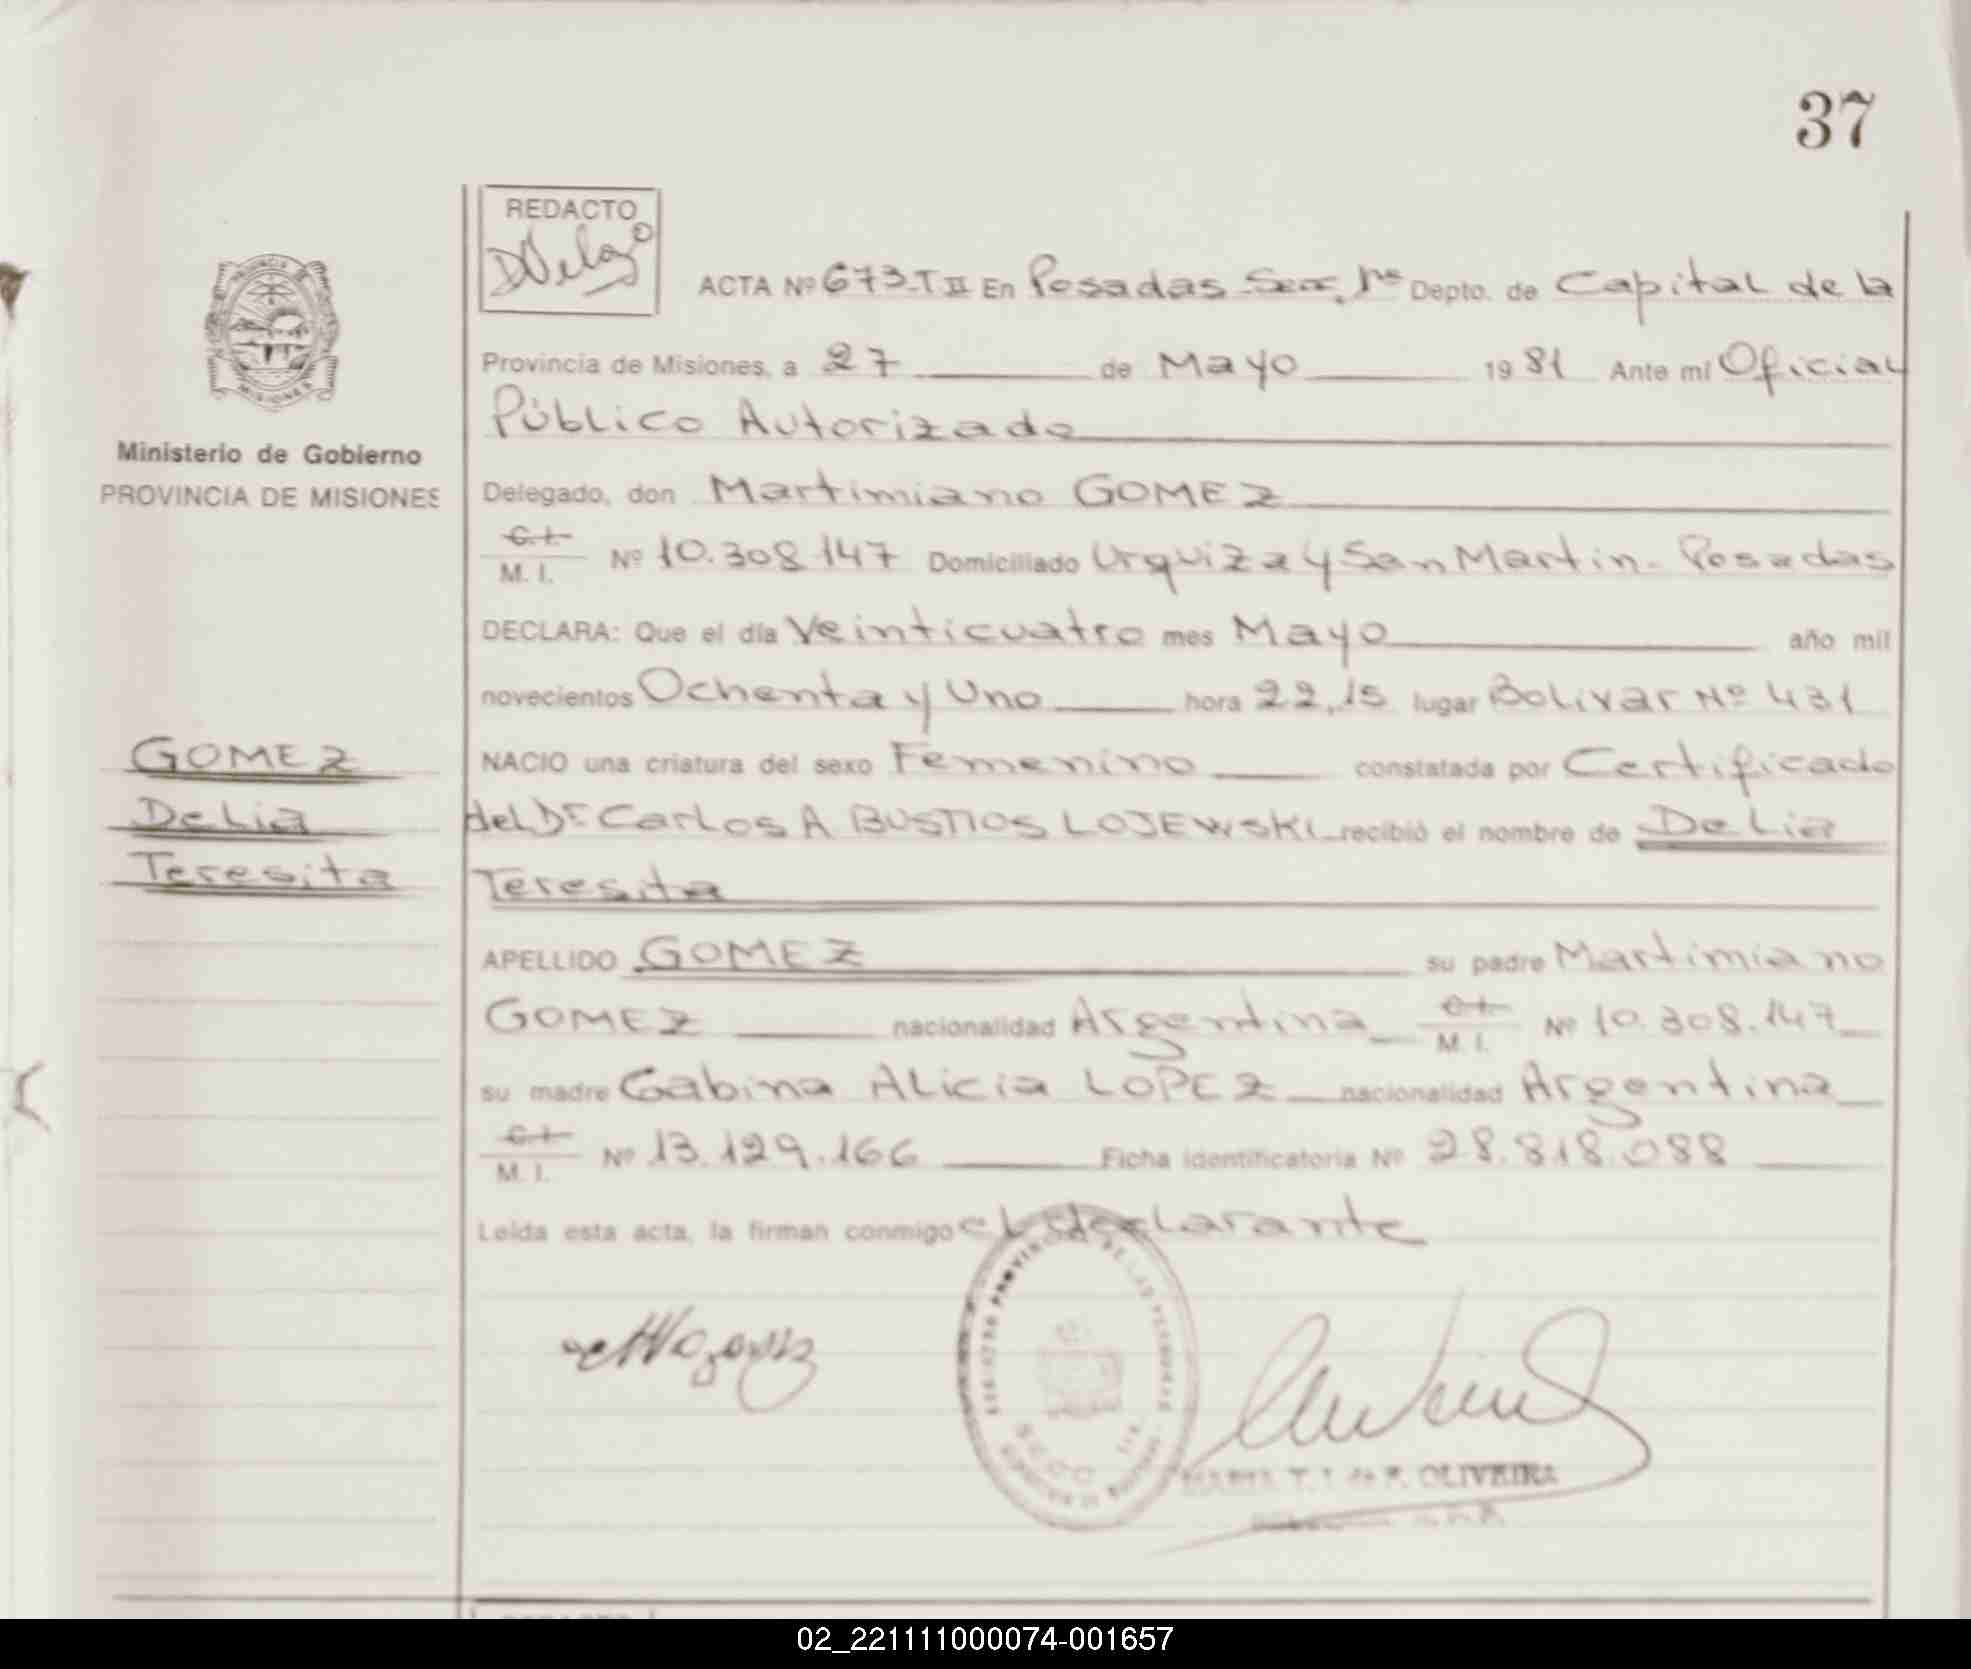 37
REDACTO
ACTA Nº 673-T II En Posadas Secc. 1ra Depto. de Capital de la
Provincia de Misiones, a 27 de Mayo 1981 Ante mí Oficial
Público Autorizado
Ministerio de Gobierno
PROVINCIA DE MISIONES
Delegado, don Martimiano GOMEZ
C.I.
M. I. Nº 10.308.147 Domiciliado Urquiza y San Martin - Posadas
DECLARA: Que el día Veinticuatro mes Mayo año mil
novecientos Ochenta y Uno hora 22,15 lugar Bolivar Nº 431
GOMEZ
Delia
Teresita
NACIO una criatura del sexo Femenino constatada por Certificado
del Dr Carlos A BUSTIOS LOJEWSKI recibió el nombre de Delia
Teresita
APELLIDO GOMEZ su padre Martimiano
GOMEZ nacionalidad Argentina C.I.
M. I. Nº 10.308.147
su madre Gabina Alicia LOPEZ nacionalidad Argentina
C.I.
M. I. Nº 13.129.166 Ficha identificatoria Nº 28.818.088
Leída esta acta, la firman conmigo el declarante
OLIVEIRA
02_221111000074-001657